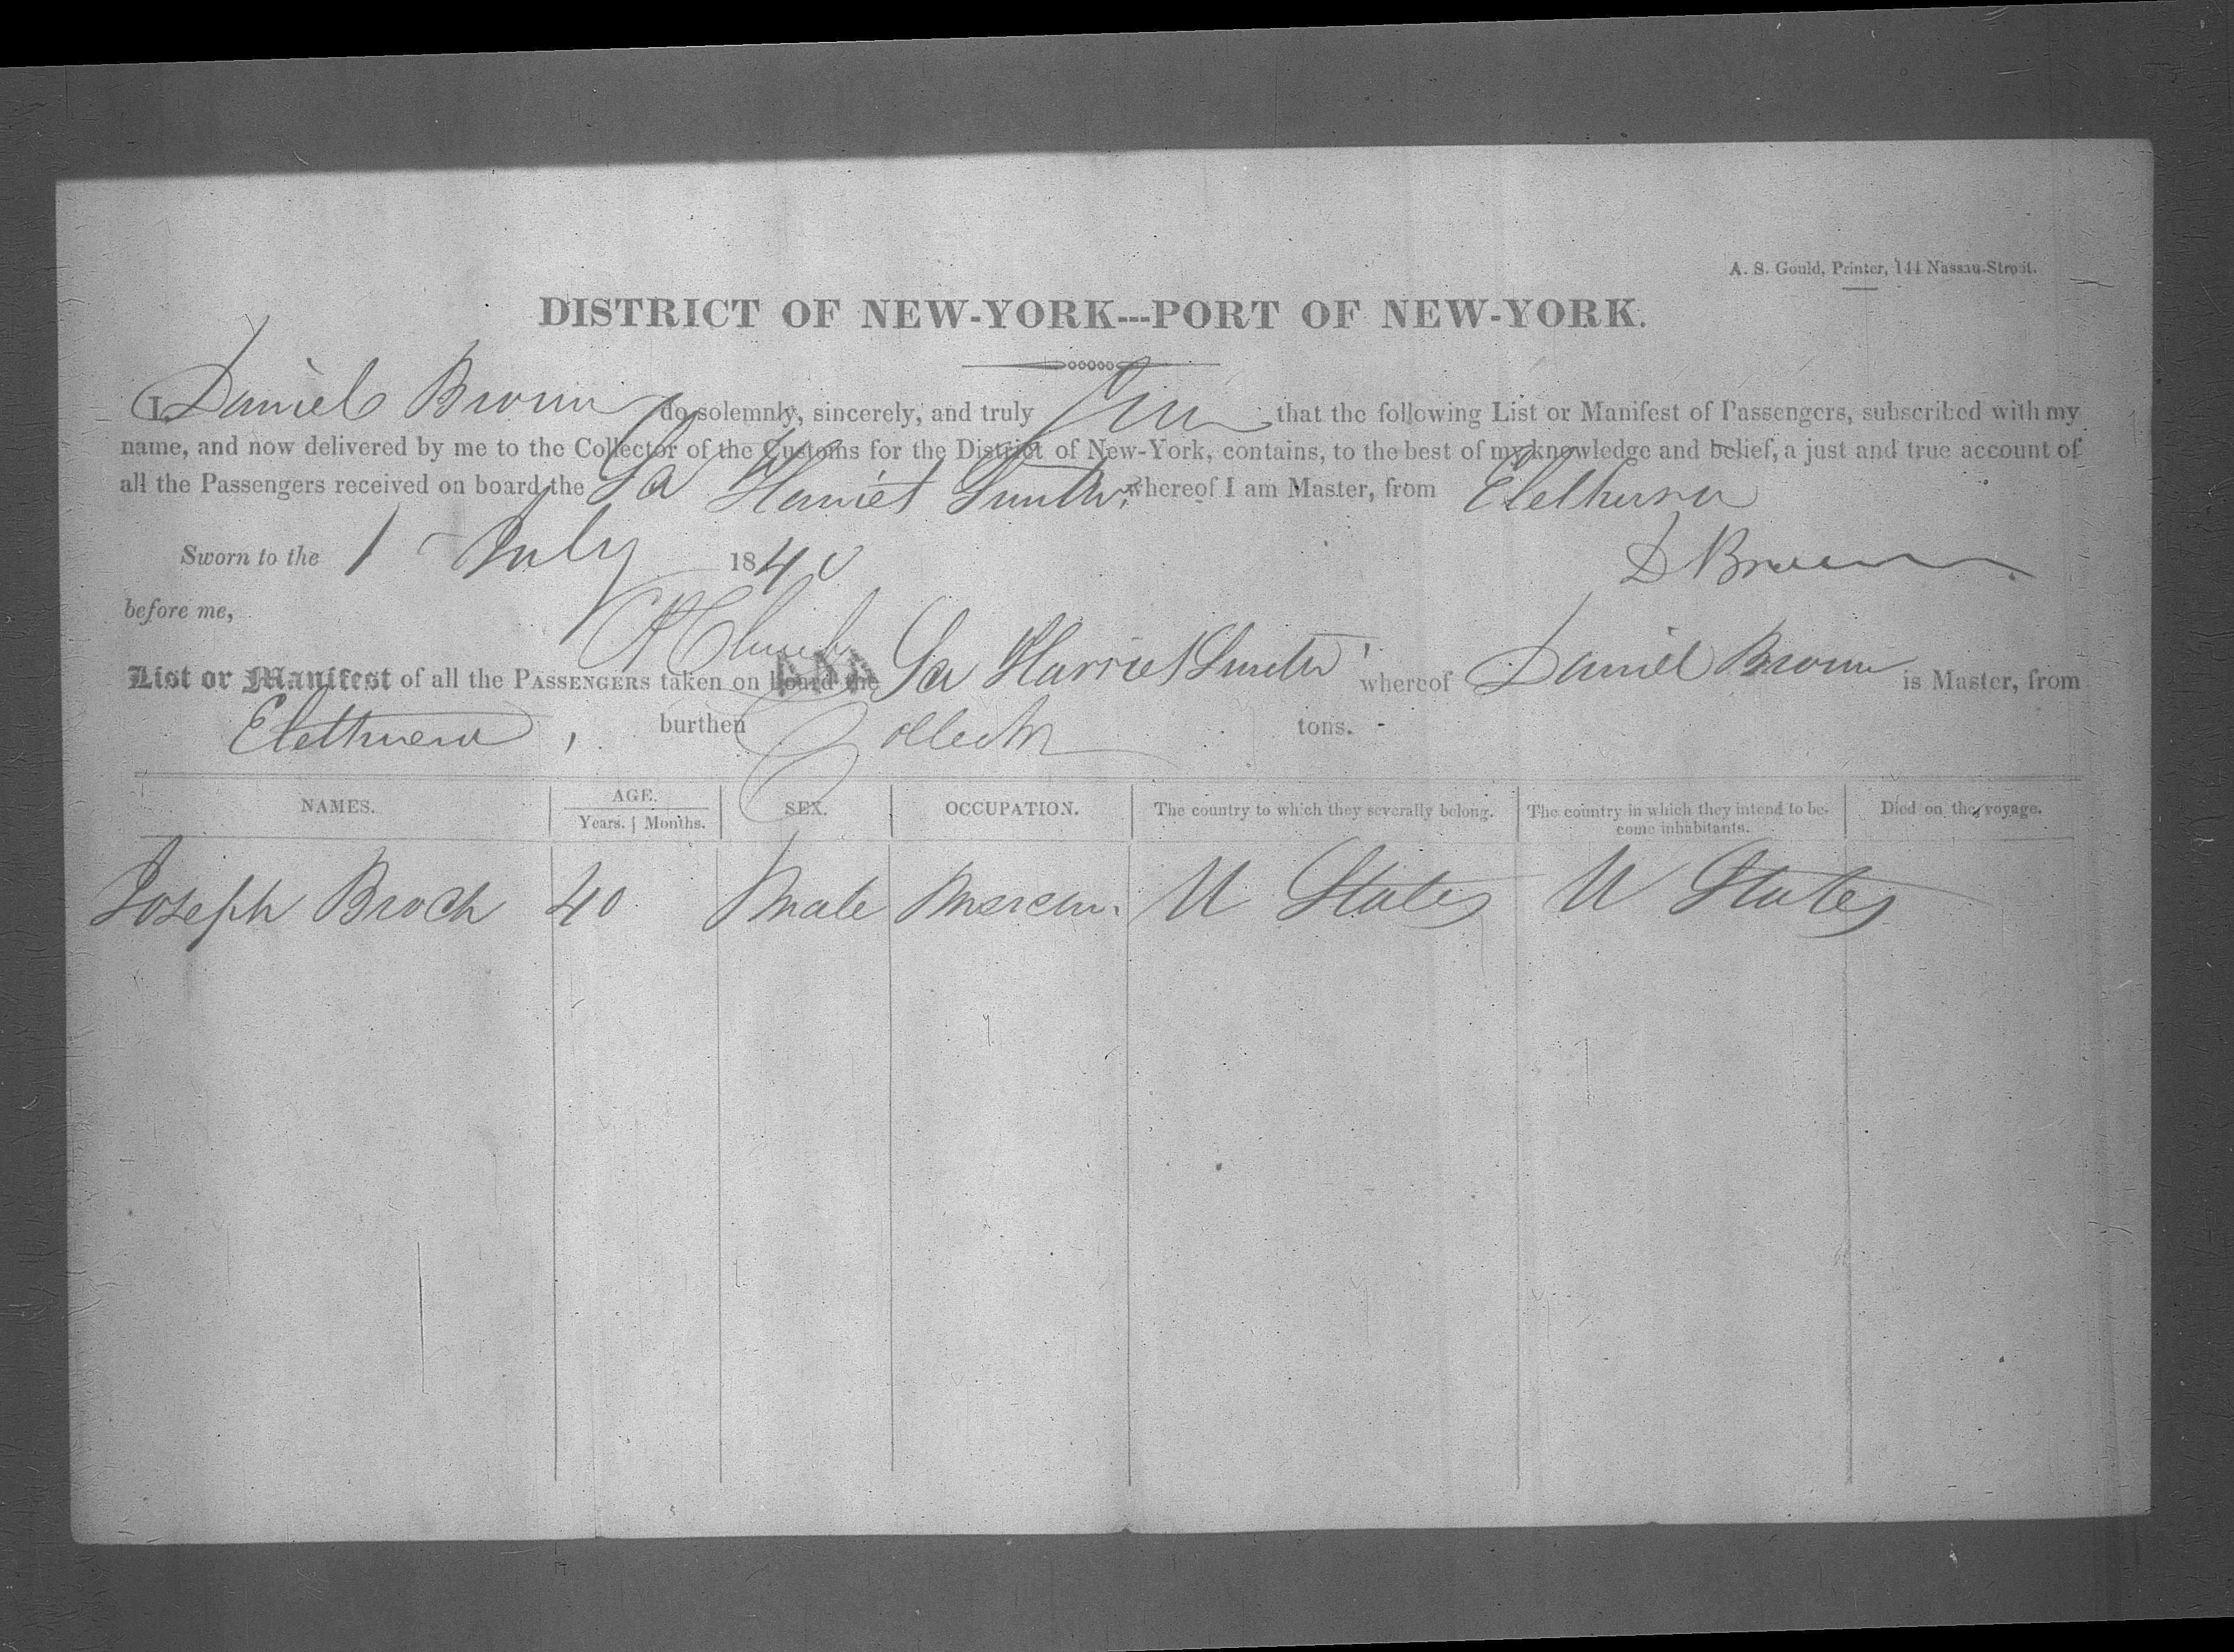 A. S. Gould, Printer, 144 Nassau-Street.
DISTRICT OF NEW-YORK---PORT OF NEW-YORK.
I, Daniel Brown do solemnly, sincerely, and truly that the following List or Manifest of Passengers, subscribed with my
name, and now delivered by me to the Collector of the Customs for the District of New-York, contains, to the best of my knowledge and belief, a just and true account of
all the Passengers received on board the Harriet Smith whereof I am Master, from Eletherva
Sworn to the 1 July 1840
D Brown
before me,
List or Manifest of all the PASSENGERS taken on board the Harriet Smith whereof Daniel Brown is Master, from
burthen Collector tons.
NAMES. AGE. SEX. OCCUPATION. The country to which they severally belong. The country in which they intend to be- Died on the voyage.
Years. Months. come inhabitants.
Joseph Broch 40 Male U States U States